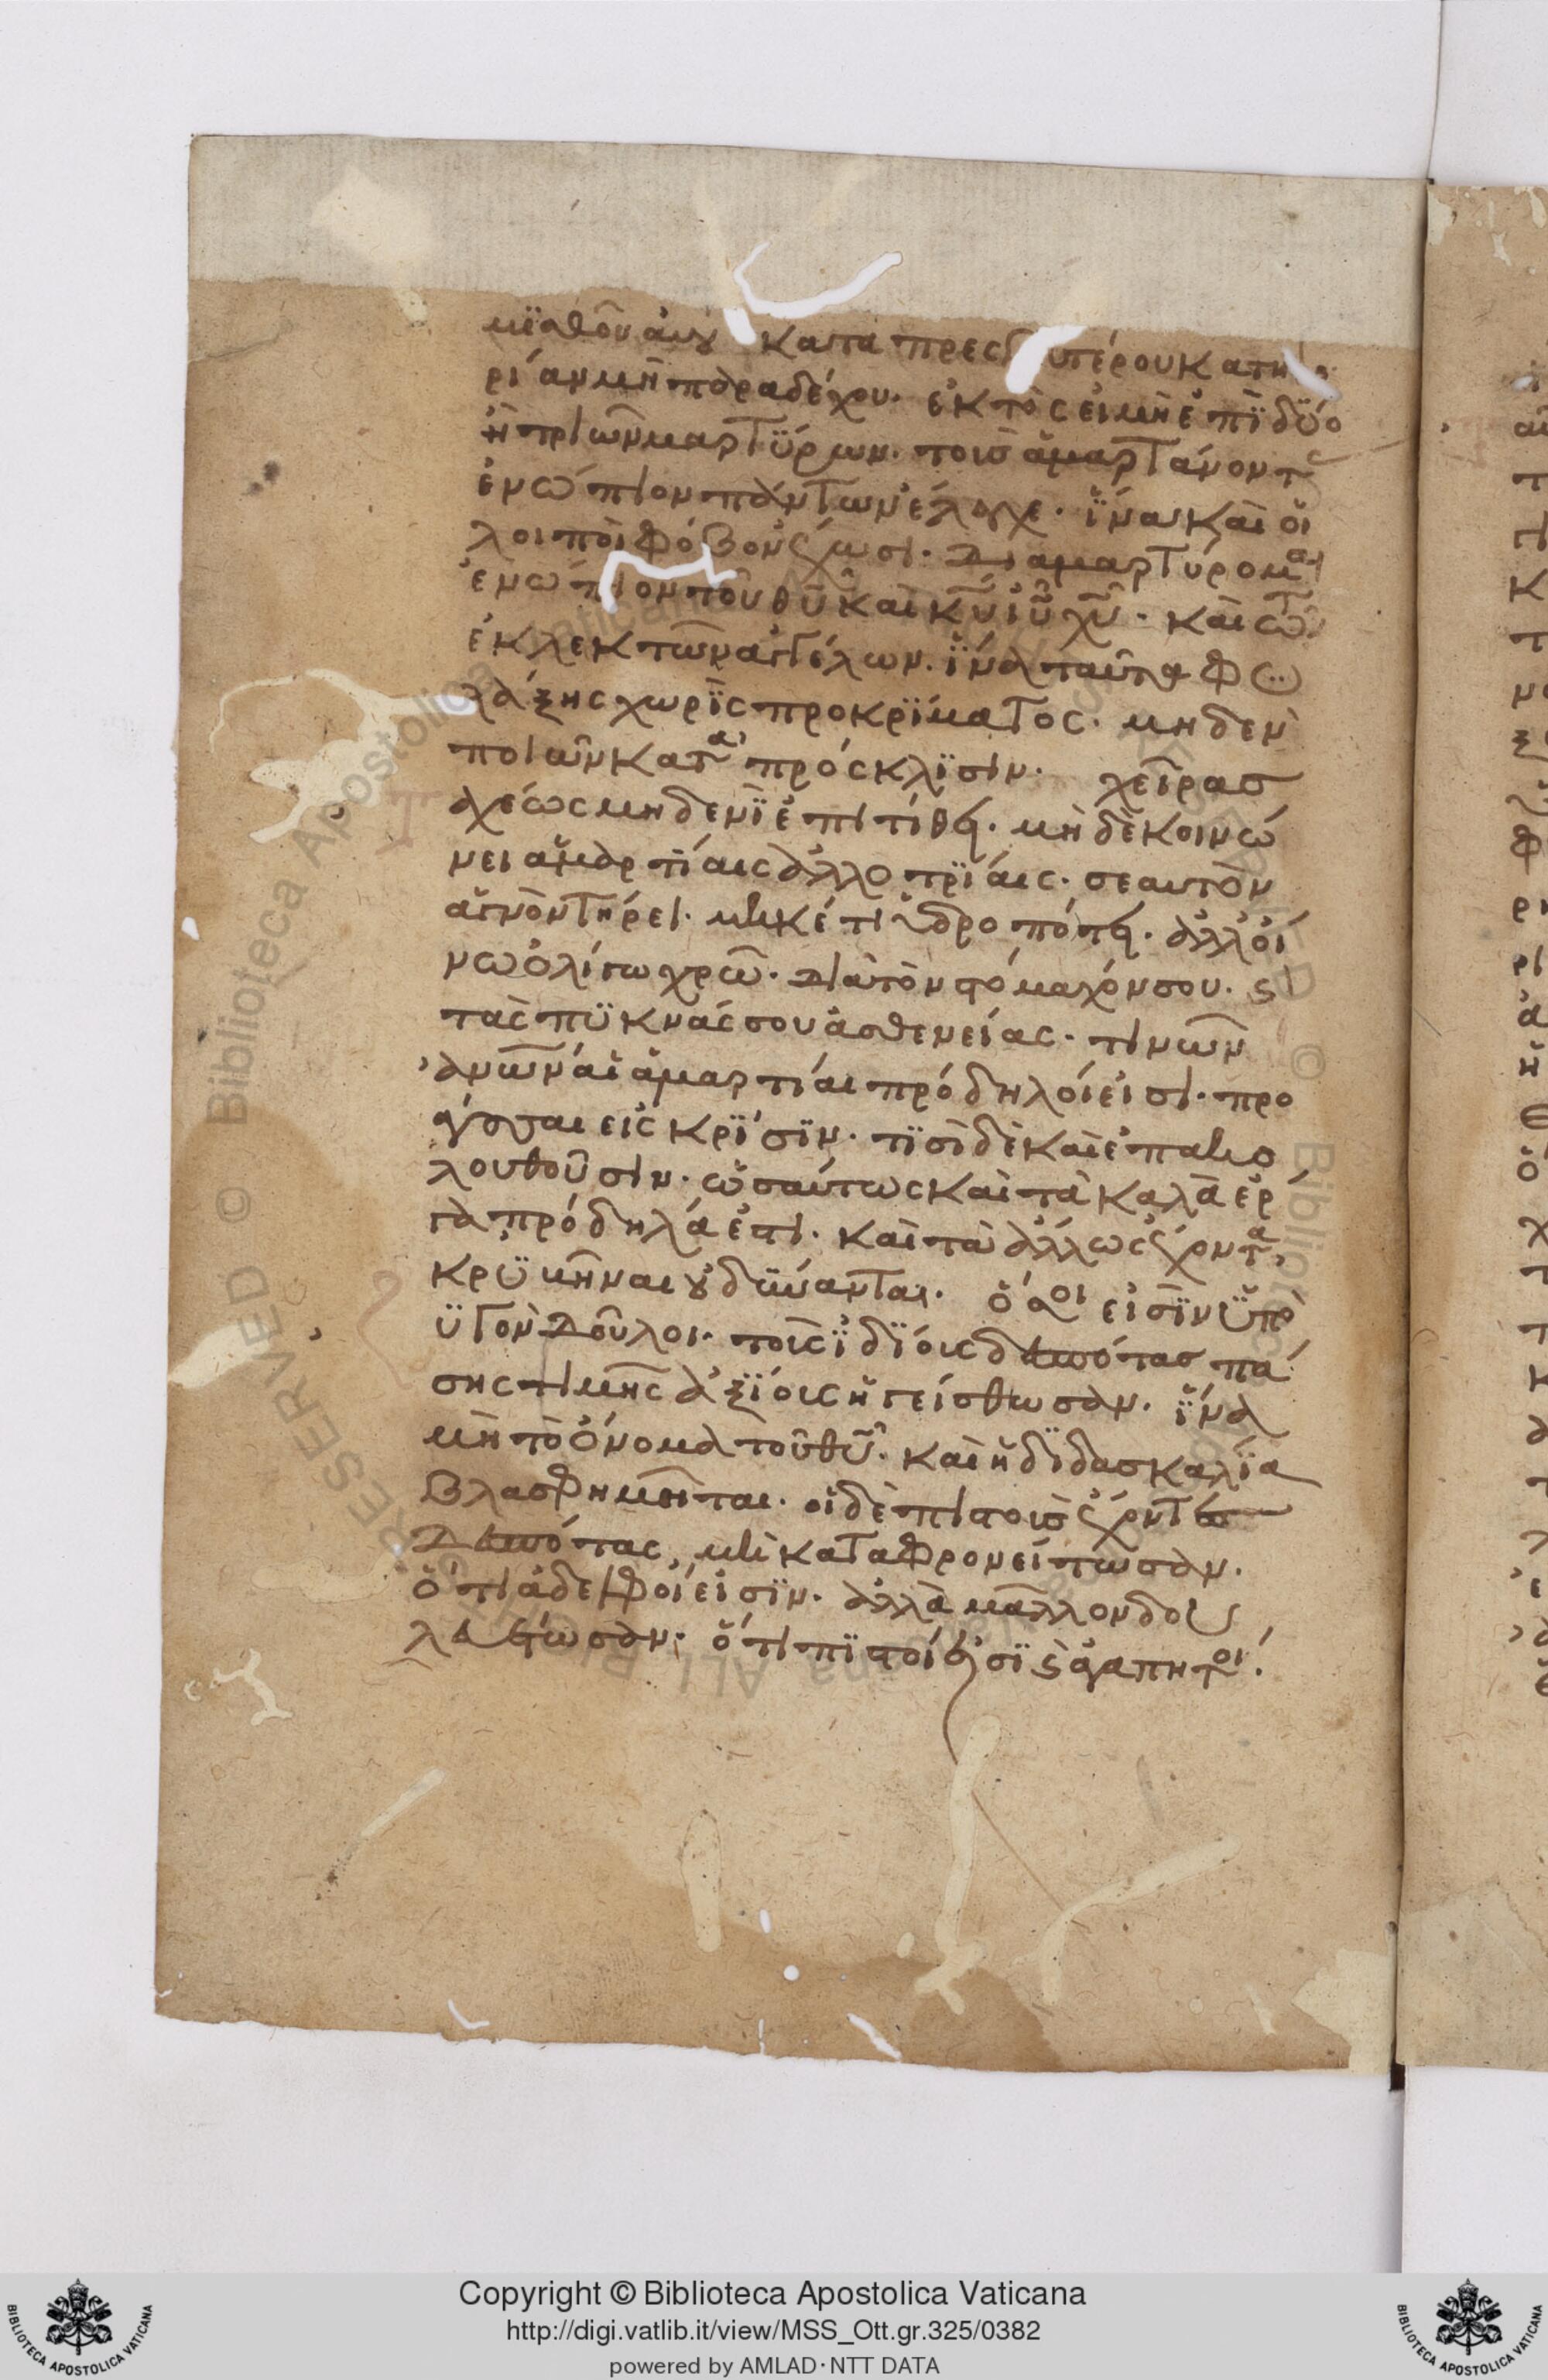 μϊσθοῦ αὐτȣ κατα πρεσβυτέρου κατηγο
ρίαν μὴ παραδέχου. ἐκτὸς εἰ μὴ ἐπῒ δϋο
ἢ τριῶν μαρτϋρων. τοὺς ἁμαρτάνοντ
ἐνώπιον πάντων ἔλεγχε. ἵνα καὶ οἱ
λοιποὶ φόβον ἔχωσι. διαμαρτύρομαι
ἐνώπιον τοῦ θῦ καὶ κῦ ἰῦ χῦ. καὶ τῶ
ἐκλεκτῶν ἀγγέλων. ἵνα ταῦτα φυ
λάξης χωρῒς προκρϊματος. μηδεν
ποιῶν κατὰ πρόσκλϊσιν. χεῖρασ
αχέως μηδενῒ ἐπιτίθει. μηδὲ κοινώ
νει ἁμαρτίαις ἀλλοτρϊάις. σεαυτὸν
ἁγνὸν τήρει. μηκέτι ὑδροπότει. ἀλλ' οἴ
νω ὀλίγω χρῶ. διὰ τὸν στόμαχόν σου. ϗ
τὰς πϋκνάς σου ἀσθενείας. τινῶν
ἀνῶν αἱ ἁμαρτίαι πρόδηλοί εἰσι. προ
άγουσαι εἰς κρϊσϊν. τϊσὶ δὲ καὶ ἐπακο
λουθοῦσιν. ὡσαύτως καὶ τὰ καλὰ ἔρ
γα πρόδηλά ἐστι. καὶ τὰ ἄλλως ἔχοντα
κρϋβῆναι ȣ δϋνανται. ὅσοι εἰσῒν ὑπὸ
ϋγον δοῦλοι. τοὺς ἰδϊους δεσπότασ πά
σης τιμῆς ἀξϊους ἡγείσθωσαν. ἵνα
μὴ τὸ ὄνομα τοῦ θῦ. καὶ ἡ δϊδασκαλϊα
βλασφημεῖται. οἱ δὲ πιστοὺς ἔχοντεσ
δεσπότας, μὴ καταφρονείτωσαν.
ὅτι ἀδελφοί εἰσϊν. ἀλλὰ μᾶλλον δου
λευέτωσαν. ὅτι πϊστοί εἰσϊ ϗ ἀγαπητοί.
Copyright © Biblioteca Apostolica Vaticana
http://digi.vatlib.it/view/MSS_Ott.gr.325/0382
powered by AMLAD·NTT DATA